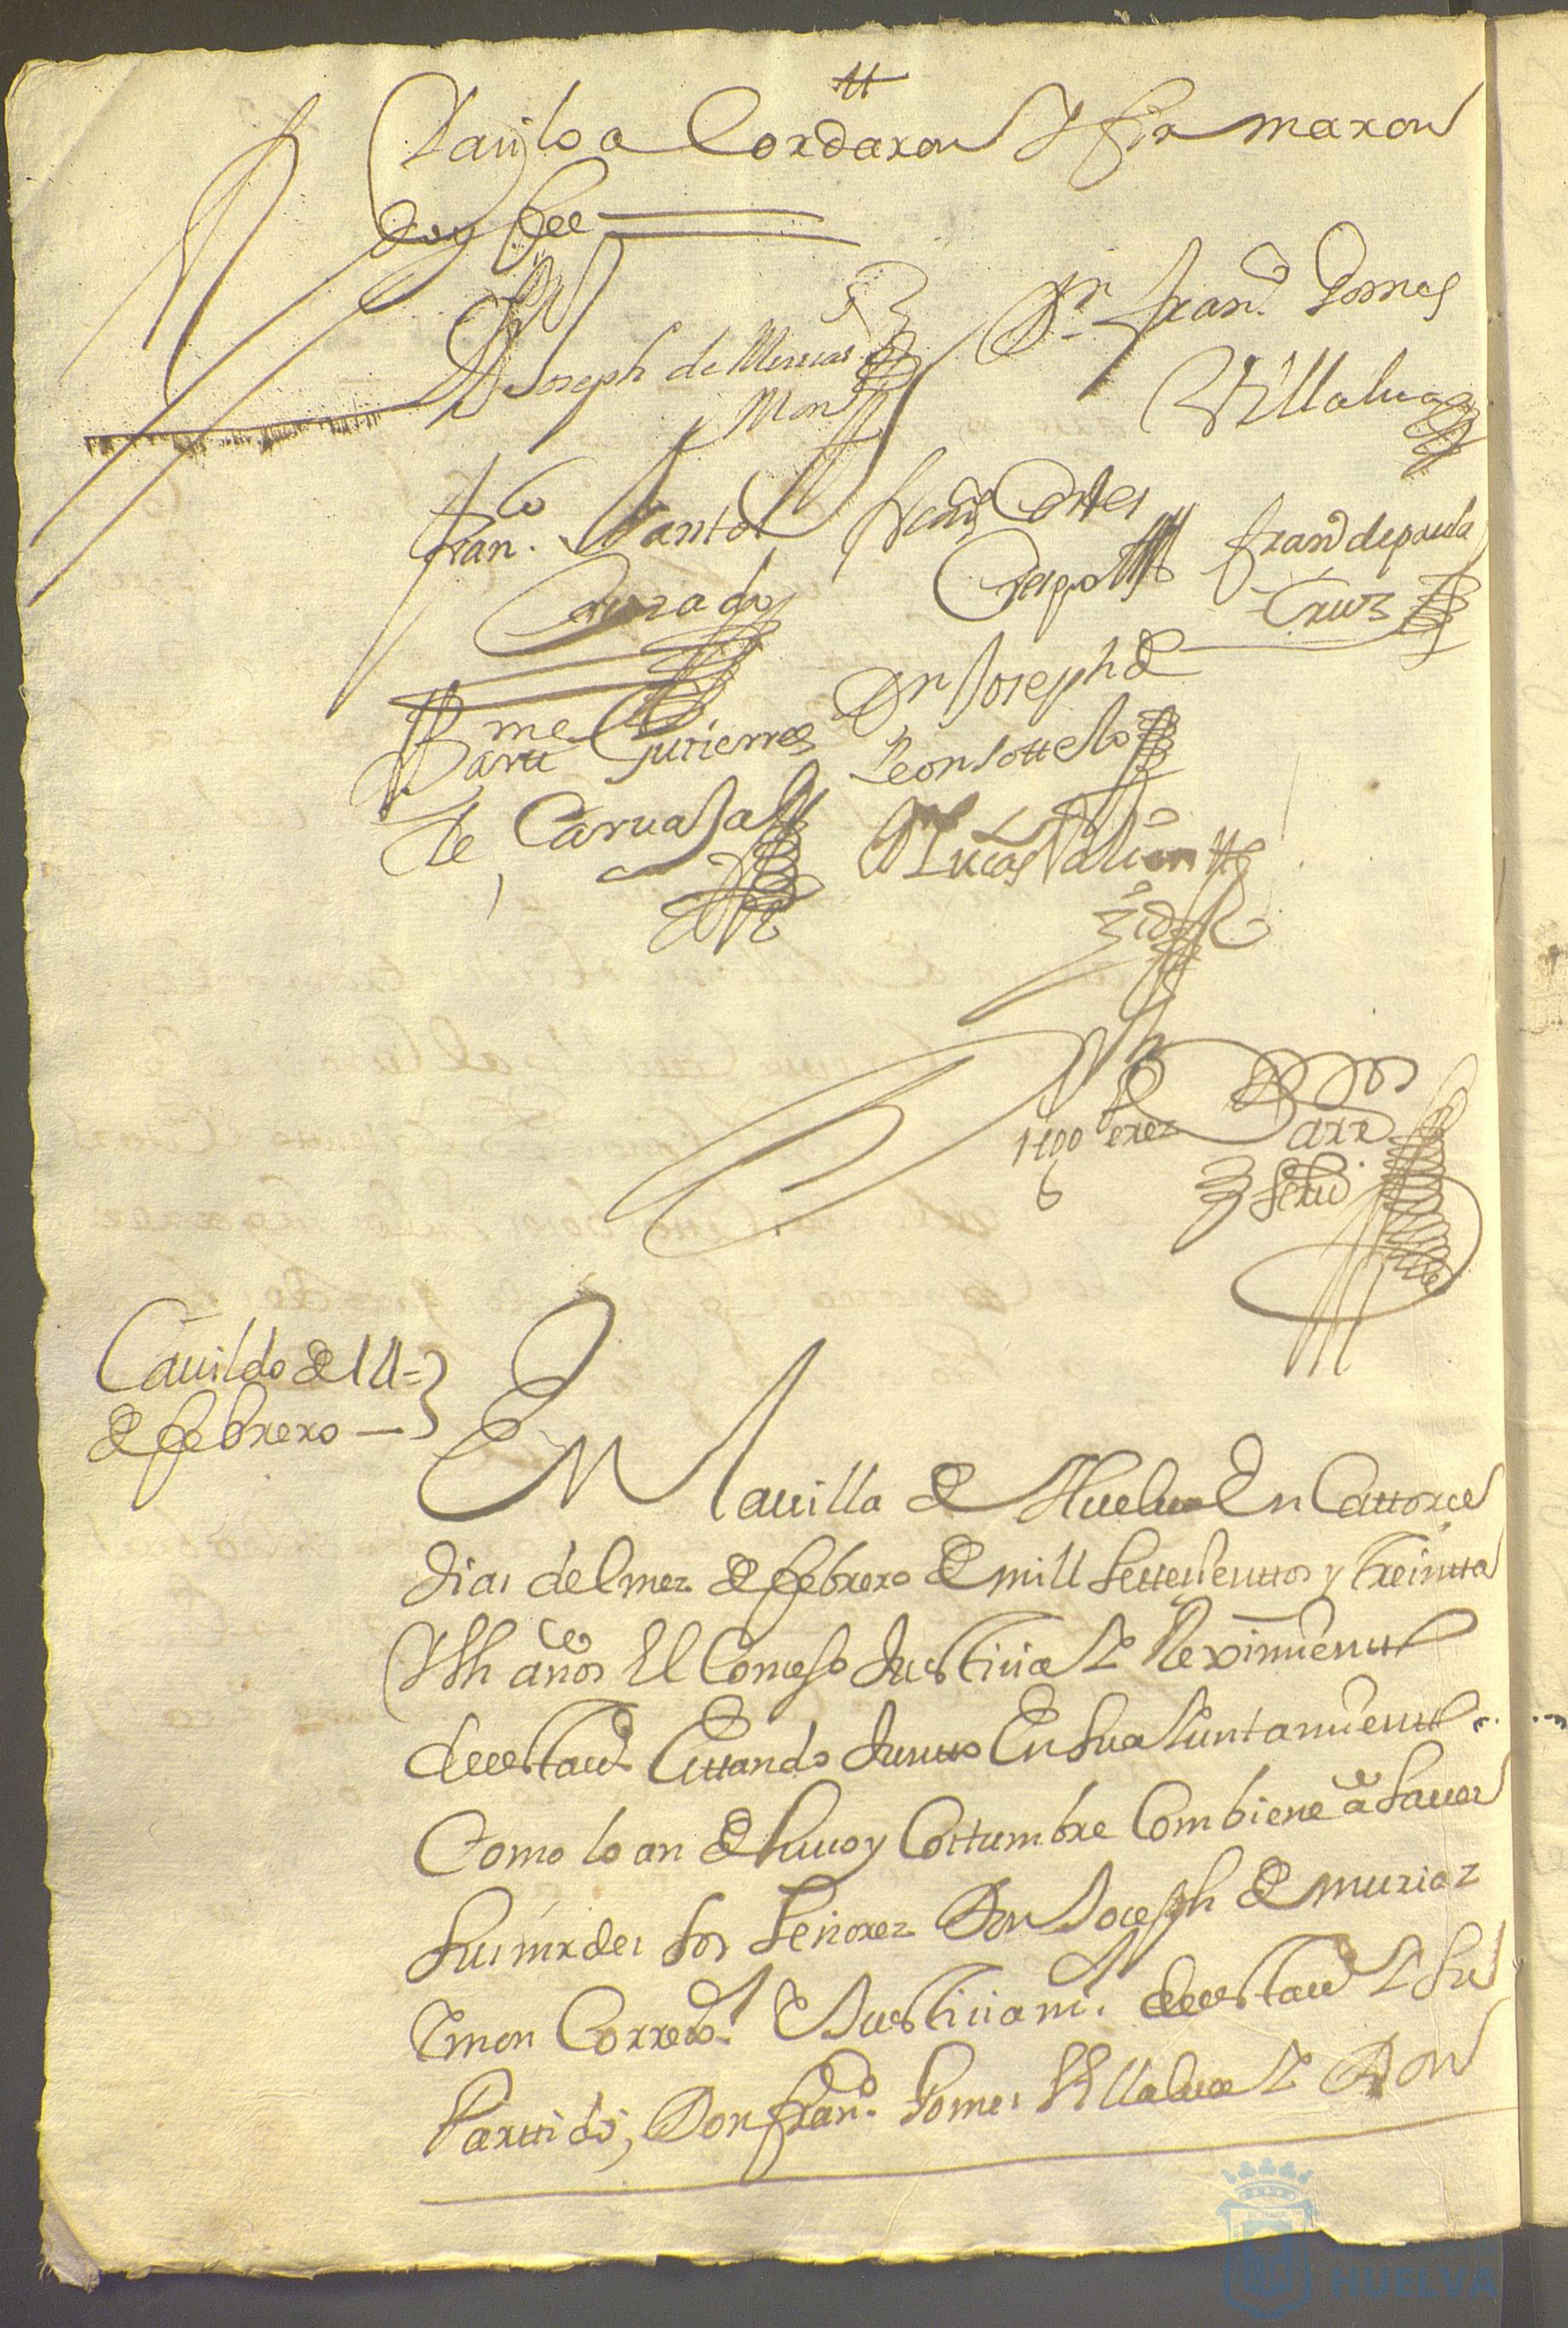 tt
Y assi lo a Cordaron Y firmaron
doy fee
Dn Joseph de Murias
Mon
Dn Fran.co Gomes
Villalua
Fran.co Santos
Quexado
Fran.co Cortes
Crespo
fran.co de paula
Cruz
Barttme Gutierres
de Caruajal
Dn Joseph de
Leon Sottelo
Lucas Valientte
Perez Barr
SSno
Cauildo de 14
de febrero
En la uilla de Huelua En Cattorce
dias del mes de febrero de mill Settesenttos y treintta
Y años El Consejo Justicia Y Reximientt
deesta Villa Estando Juntto En su a Juntamientt
Como lo an de huso y Costumbre Combiene a sauer
Sus mrdes los Señores Don Joseph de murias
Y mon Corredor. E Justicia mr. deesta Vª Y Su
Parttido, Don franco. Gomes Villalua Y Don
HUELVA